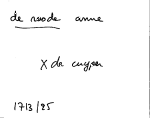 de roode anne
X de cuyper
1713/85